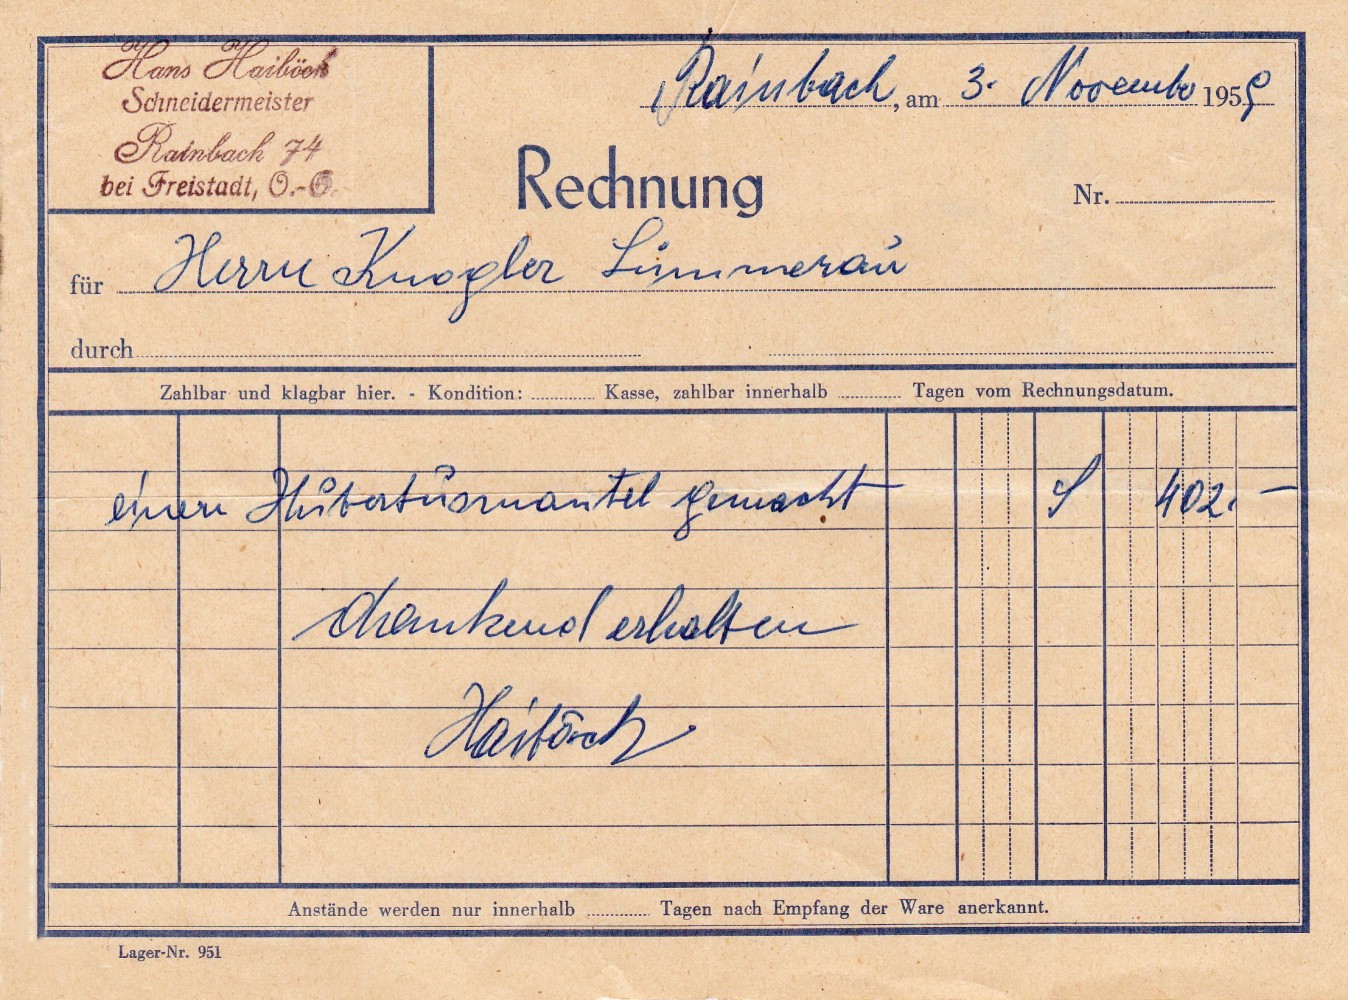 Hans Haiböck
Schneidermeister
Rainbach 74
bei Freistadt, O.-Ö.
Rainbach, am 3. November 1959
Rechnung
Nr.
für Herrn Knogler Summerau
durch
Zahlbar und klagbar hier. - Kondition: Kasse, zahlbar innerhalb Tagen vom Rechnungsdatum.
einen Hubertusmantel gemacht S 402.—
dankend erhalten
Haiböck
Anstände werden nur innerhalb Tagen nach Empfang der Ware anerkannt.
Lager-Nr. 951